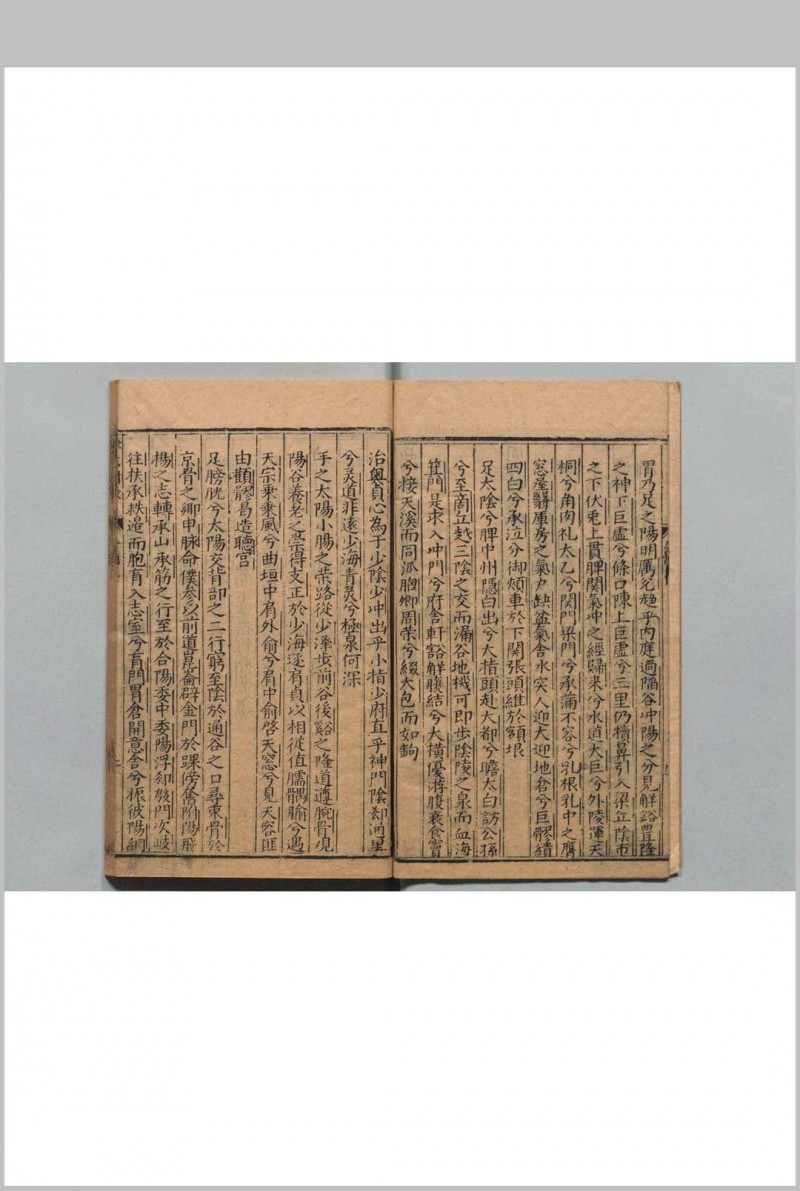 胃乃足之陽明厲兌趨乎內庭過陷谷冲陽之分見解谿豊隆
之神下巨虛兮條口陳上巨虛兮三里仍犢鼻引入梁丘陰市
之下伏兎上貫髀関氣冲之經歸來兮水道大巨兮外陵運天
桐兮角肉礼太乙兮関門梁門兮承滿不容兮乳根乳中之膺
窓屋翳庫房之氣户缺盆氣舍水突人迎大迎地倉兮巨髎績
四白兮承泣分御頰車於下関張頭維於額垠
足太陰兮脾中州隱白出兮大指頭赴大都兮瞻太白訪公孫
兮至商丘越三陰之交而漏谷地機可即步陰陵之泉而血海
箕門是求入冲門兮府舎軒豁解腹結兮大橫優游腹哀食竇
兮接天溪而同派胸鄉周荣兮綴大包而如鉤
治與貞心為手少陰少冲出乎小指少府直乎神門陰郄通里
兮灵道非遠少海青灵兮極泉何深
手之太陽小腸之荣路從少澤步前谷後谿之隆道遵腕骨观
陽谷養老之崇得支正於少海逐肩貞以相從值臑髃腧兮遇
天宗乘秉風兮曲垣中肩外俞兮肩中俞啓天窓兮見天容匪
由顴髎曷造聽宮
足膀胱兮太陽交背部之二行窮至陰於通谷之口尋束骨於
京骨之鄉申脉命僕參以前道崑崙辟金門於踝傍奮附陽飛
楊之志轉承山承筋之行至於合陽委中委陽浮郄殷門次岐
往扶承秩邉而胞肓入志室兮肓門胃倉開意舎兮振彼陽綱